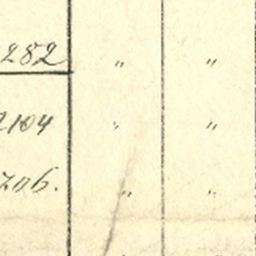 282 " "
2104 " "
206. " "